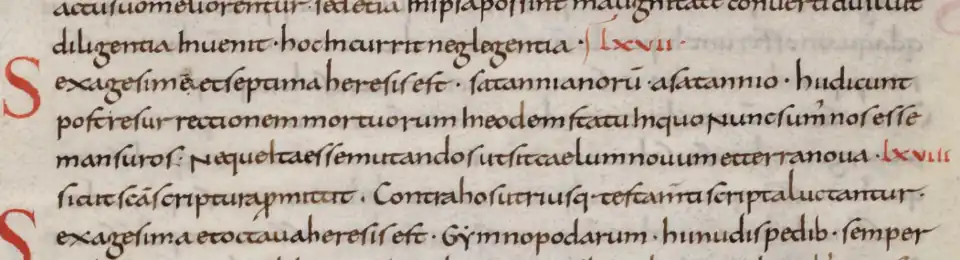 actu suo meliorentur · sed etia in ipsa possint malignitate converti divinit
diligentia Invenit · hoc Incurrit neglegentia · lxvii ·
Sexagesime et septima heresis est · satannianorū · a satannio · hi dicunt
post resurrectionem mortuorum In eodem statu In quo Nunc sum̅ nos esse
mansuros : Neque Ita esse mutandos ut sit caelum novum et terra nova · lxviii
sicut scā scriptura ꝓmittit · Contra hos utriusq· testam̅ti scripta luctantur ·
Sexagesima et octava heresis est · Gẏmnopodarum · hi nudis pedib· semper